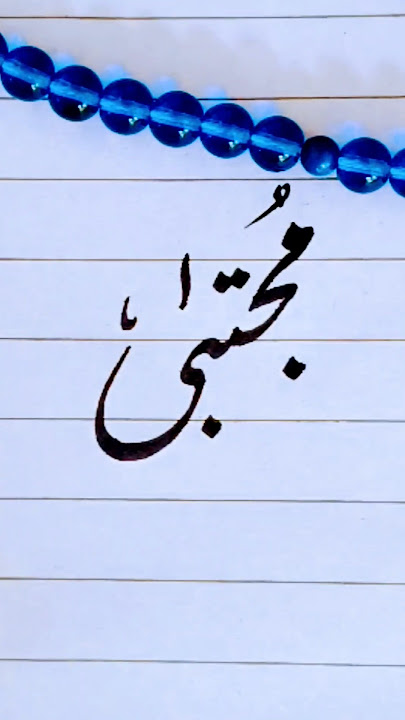 مُجتبیٰ